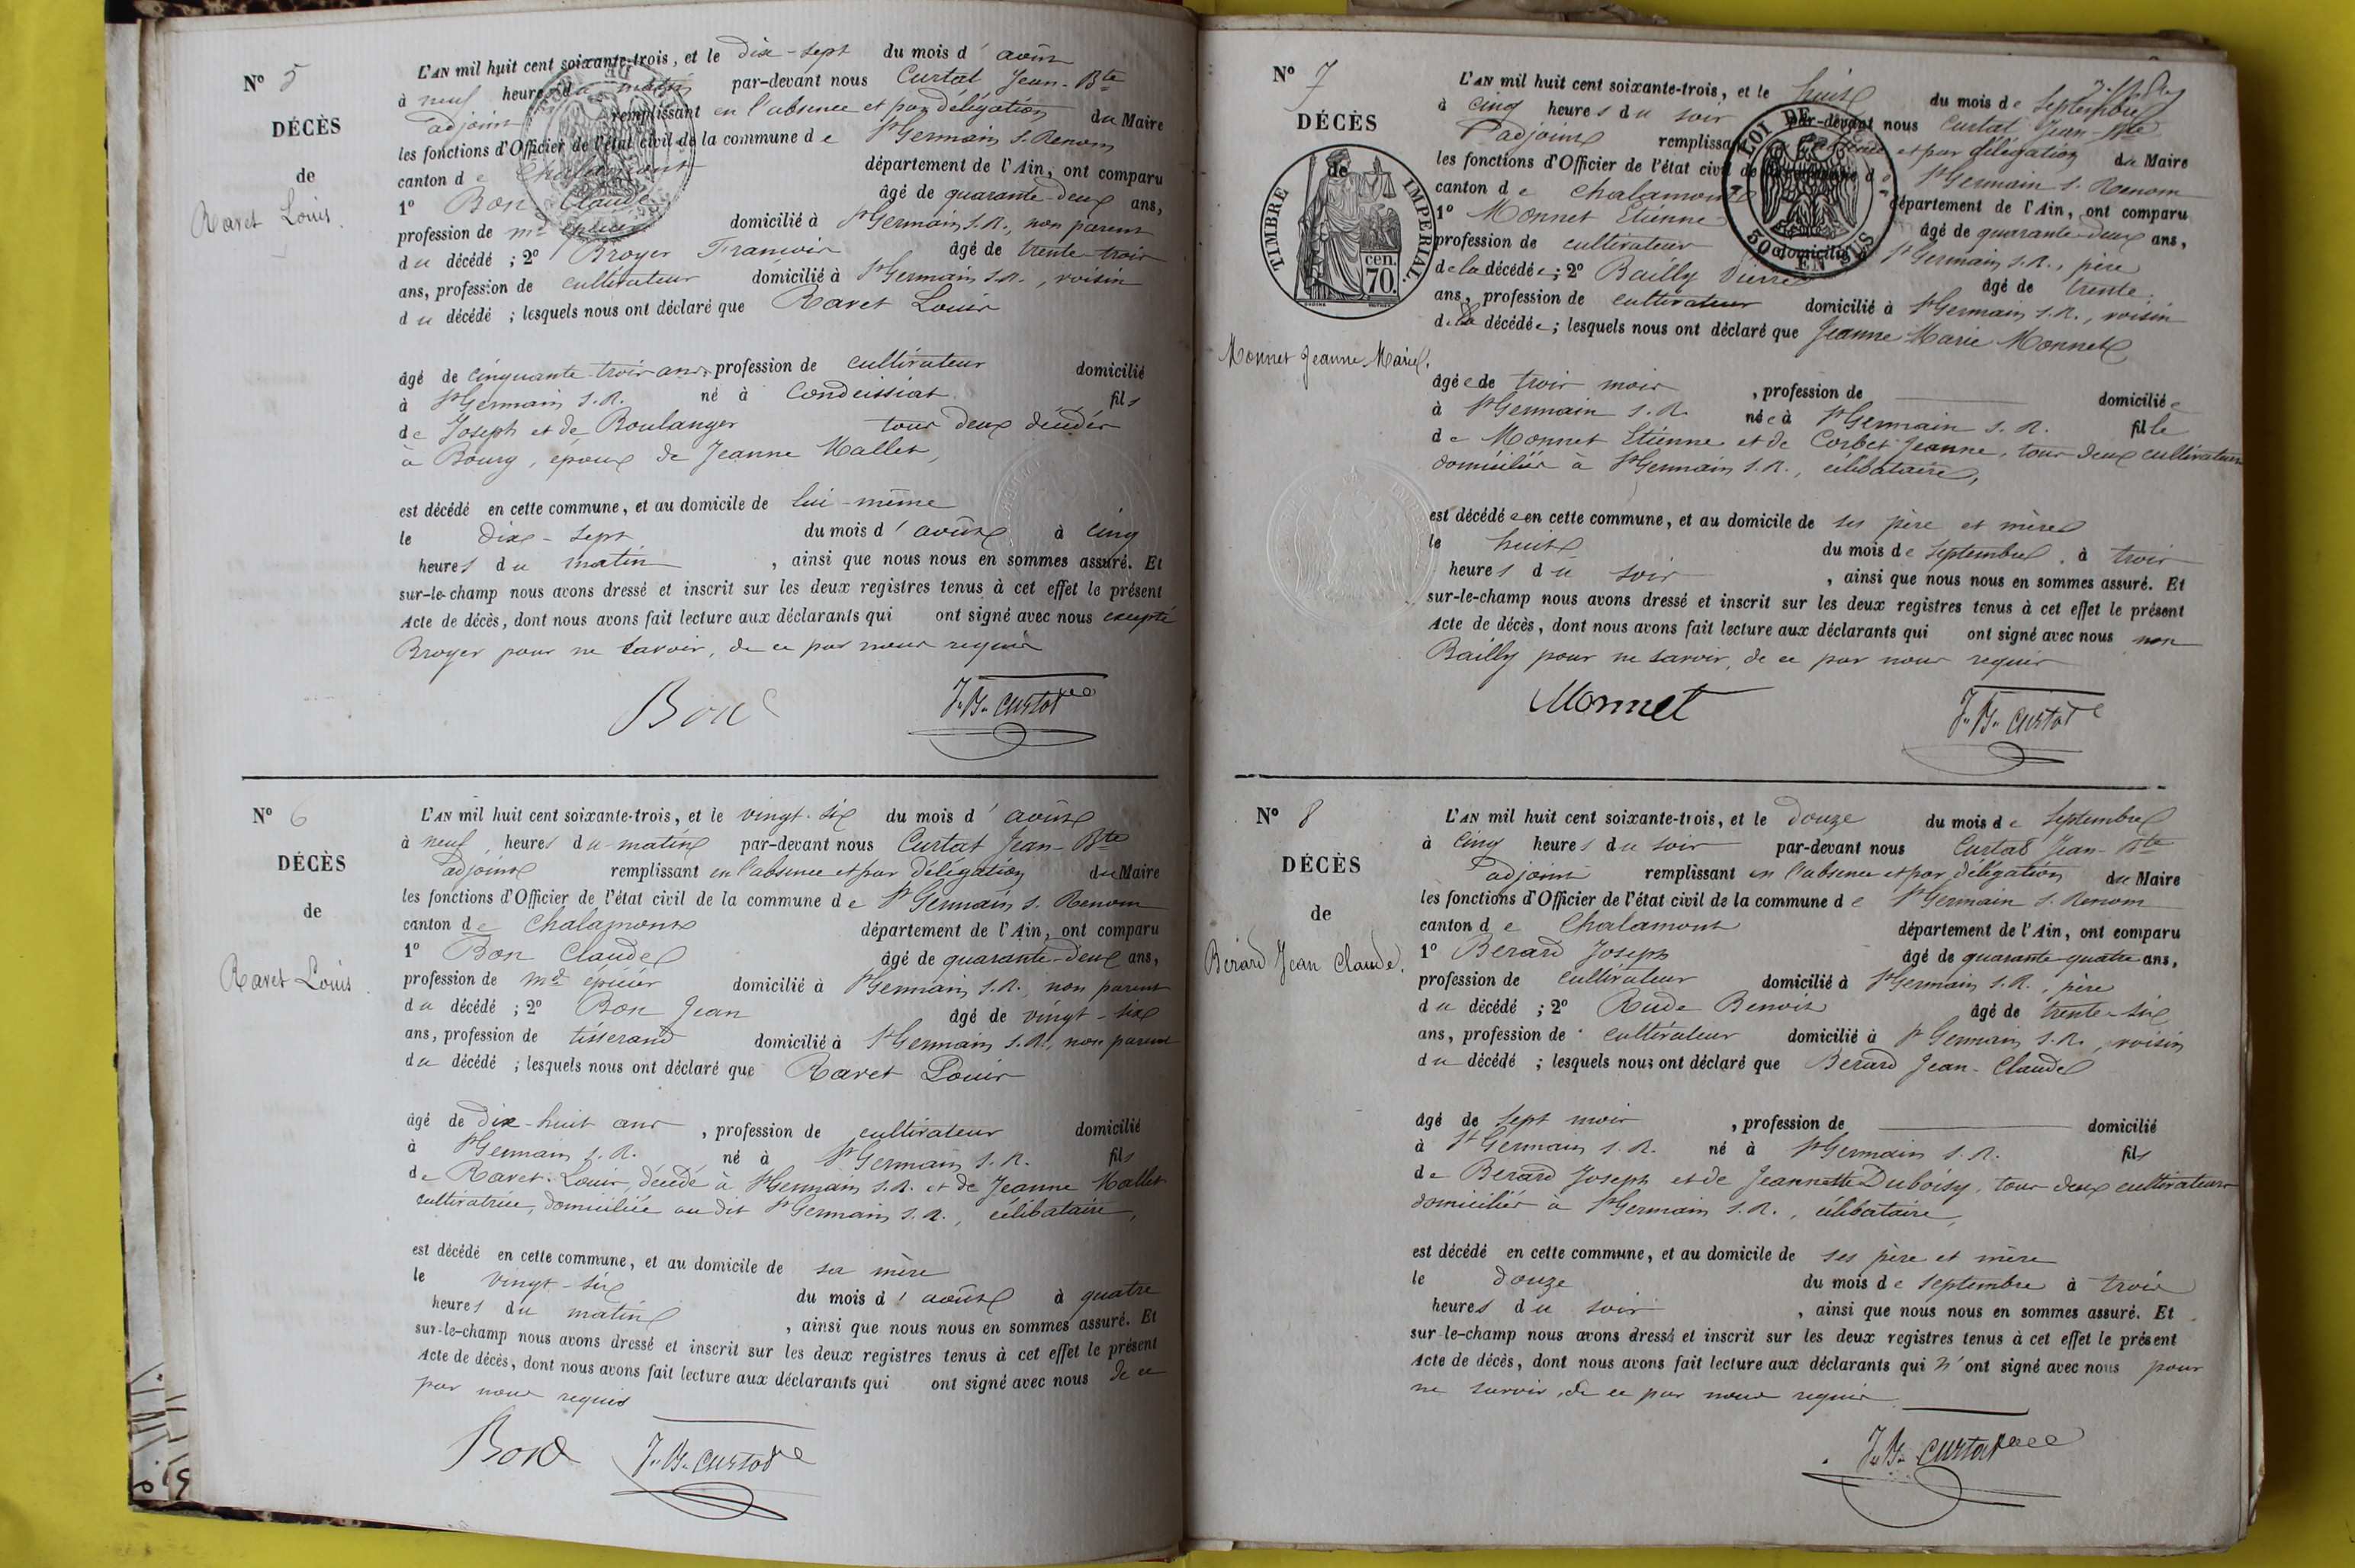 N° 5
DÉCÈS
de
Ravet Louis.
L'AN mil huit cent soixante-trois, et le dix-sept du mois d'août
à neuf heures du matin par-devant nous Curtat Jean-Bte
adjoint remplissant en l'absence et par délégation du Maire
les fonctions d'Officier de l'état civil de la commune de St Germain s. Renom
canton de Chalamont département de l'Ain, ont comparu
1° Bon Claude âgé de quarante-deux ans,
profession de md épicier domicilié à St Germain s. R., non parent
du décédé ; 2° Broyer François âgé de trente-trois
ans, profession de cultivateur domicilié à St Germain s. R., voisin
du décédé ; lesquels nous ont déclaré que Ravet Louis
âgé de cinquante-trois ans, profession de cultivateur domicilié
à St Germain s. R. né à Condeissiat fils
de Joseph et de Boulanger tous deux décédés
à Bourg, époux de Jeanne Mallet,
est décédé en cette commune, et au domicile de lui-même
le dix-sept du mois d'août à cinq
heures du matin , ainsi que nous nous en sommes assuré. Et
sur-le-champ nous avons dressé et inscrit sur les deux registres tenus à cet effet le présent
Acte de décès, dont nous avons fait lecture aux déclarants qui ont signé avec nous excepté
Broyer pour ne savoir, de ce par nous requis
Bon J. B. Curtat
N° 6
DÉCÈS
de
Ravet Louis.
L'AN mil huit cent soixante-trois, et le vingt-six du mois d'août
à neuf heures du matin par-devant nous Curtat Jean-Bte
adjoint remplissant en l'absence et par délégation du Maire
les fonctions d'Officier de l'état civil de la commune de St Germain s. Renom
canton de Chalamont département de l'Ain, ont comparu
1° Bon Claude âgé de quarante-deux ans,
profession de md épicier domicilié à St Germain s. R., non parent
du décédé ; 2° Bon Jean âgé de vingt-six
ans, profession de tisserand domicilié à St Germain s. R., non parent
du décédé ; lesquels nous ont déclaré que Ravet Louis
âgé de dix-huit ans , profession de cultivateur domicilié
à St Germain s. R. né à St Germain s. R. fils
de Ravet Louis, décédé à St Germain s. R. et de Jeanne Mallet
cultivatrice, domiciliée au dit St Germain s. R., célibataire,
est décédé en cette commune, et au domicile de sa mère
le vingt-six du mois d'août à quatre
heures du matin , ainsi que nous nous en sommes assuré. Et
sur-le-champ nous avons dressé et inscrit sur les deux registres tenus à cet effet le présent
Acte de décès, dont nous avons fait lecture aux déclarants qui ont signé avec nous de ce
par nous requis
Bon J. B. Curtat
N° 7
DÉCÈS
de
TIMBRE IMPÉRIAL.
cen.
70.
LOI DE
EN SUS
Monnet Jeanne Marie.
L'AN mil huit cent soixante-trois, et le huit du mois de Septembre
à cinq heures du soir par-devant nous Curtat Jean-Bte
adjoint remplissant et par délégation du Maire
les fonctions d'Officier de l'état civil de St Germain s. Renom
canton de Chalamont département de l'Ain, ont comparu
1° Monnet Etienne âgé de quarante-deux ans,
profession de cultivateur domicilié à St Germain s. R., père
de la décédée ; 2° Bailly Pierre âgé de trente
ans, profession de cultivateur domicilié à St Germain s. R., voisin
de la décédée ; lesquels nous ont déclaré que Jeanne Marie Monnet
âgée de trois mois , profession de domiciliée
à St Germain s. R. née à St Germain s. R. fille
de Monnet Etienne et de Corbet Jeanne, tous deux cultivateurs
domiciliés à St Germain s. R., célibataire,
est décédée en cette commune, et au domicile de ses père et mère
le huit du mois de Septembre à trois
heures du soir , ainsi que nous nous en sommes assuré. Et
sur-le-champ nous avons dressé et inscrit sur les deux registres tenus à cet effet le présent
Acte de décès, dont nous avons fait lecture aux déclarants qui ont signé avec nous non
Bailly pour ne savoir, de ce par nous requis
Monnet J. B. Curtat
N° 8
DÉCÈS
de
Bérard Jean Claude.
L'AN mil huit cent soixante-trois, et le douze du mois de Septembre
à cinq heures du soir par-devant nous Curtat Jean-Bte
adjoint remplissant en l'absence et par délégation du Maire
les fonctions d'Officier de l'état civil de la commune de St Germain s. Renom
canton de Chalamont département de l'Ain, ont comparu
1° Bérard Joseph âgé de quarante-quatre ans,
profession de cultivateur domicilié à St Germain s. R., père
du décédé ; 2° Rude Benoit âgé de trente-six
ans, profession de cultivateur domicilié à St Germain s. R., voisin
du décédé ; lesquels nous ont déclaré que Bérard Jean-Claude
âgé de sept mois , profession de domicilié
à St Germain s. R. né à St Germain s. R. fils
de Bérard Joseph et de Jeannette Duboisy, tous deux cultivateurs
domiciliés à St Germain s. R., célibataire,
est décédé en cette commune, et au domicile de ses père et mère
le douze du mois de Septembre à trois
heures du soir , ainsi que nous nous en sommes assuré. Et
sur-le-champ nous avons dressé et inscrit sur les deux registres tenus à cet effet le présent
Acte de décès, dont nous avons fait lecture aux déclarants qui n'ont signé avec nous pour
ne savoir, de ce par nous requis
J. B. Curtat